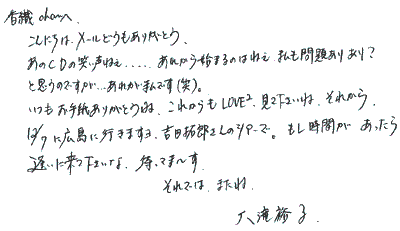 香織 chanへ
こんにちは。メールどうもありがとう。
あのCDの笑い声ねぇ.....あれから始まるのはねぇ私も問題ありあり?
と思うのですが...あれが私です(笑)。
いつもお手紙ありがとうね。これからもLOVE2見て下さいね。それから、
12/7に広島に行きますヨ。吉田拓郎さんのツアーで。もし時間があったら
逢いに来て下さいな。待ってま〜す。
それでは、またね。